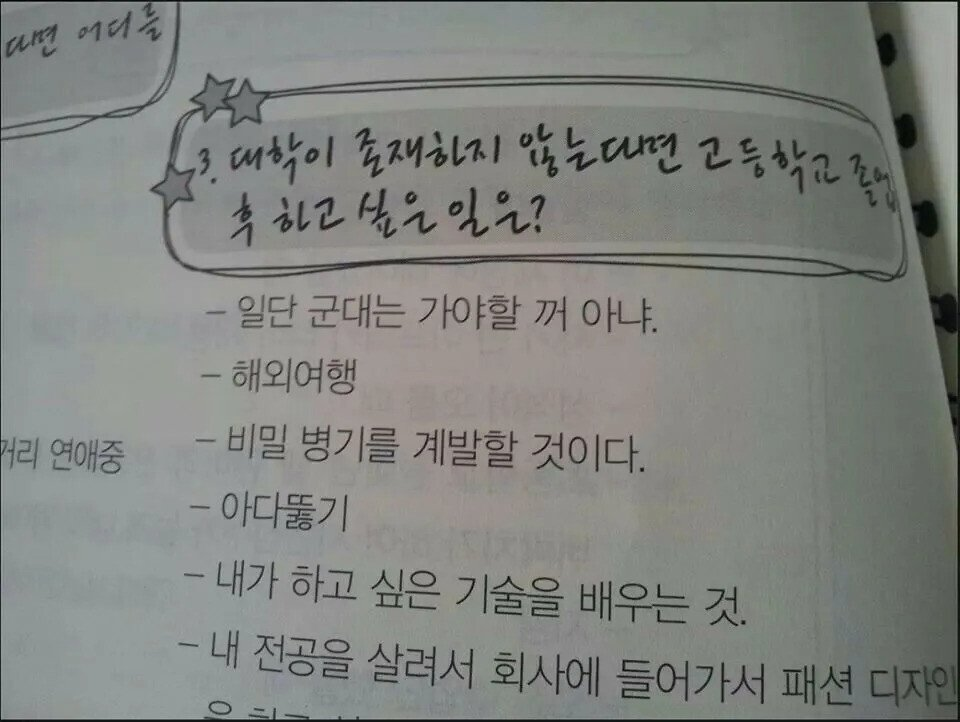 다면 어디를
3. 대학이 존재하지 않는다면 고등학교 졸업
후 하고 싶은 일은?
- 일단 군대는 가야할 꺼 아냐.
- 해외여행
거리 연애중
- 비밀 병기를 계발할 것이다.
- 아다뚫기
- 내가 하고 싶은 기술을 배우는 것.
- 내 전공을 살려서 회사에 들어가서 패션 디자인
을 하고